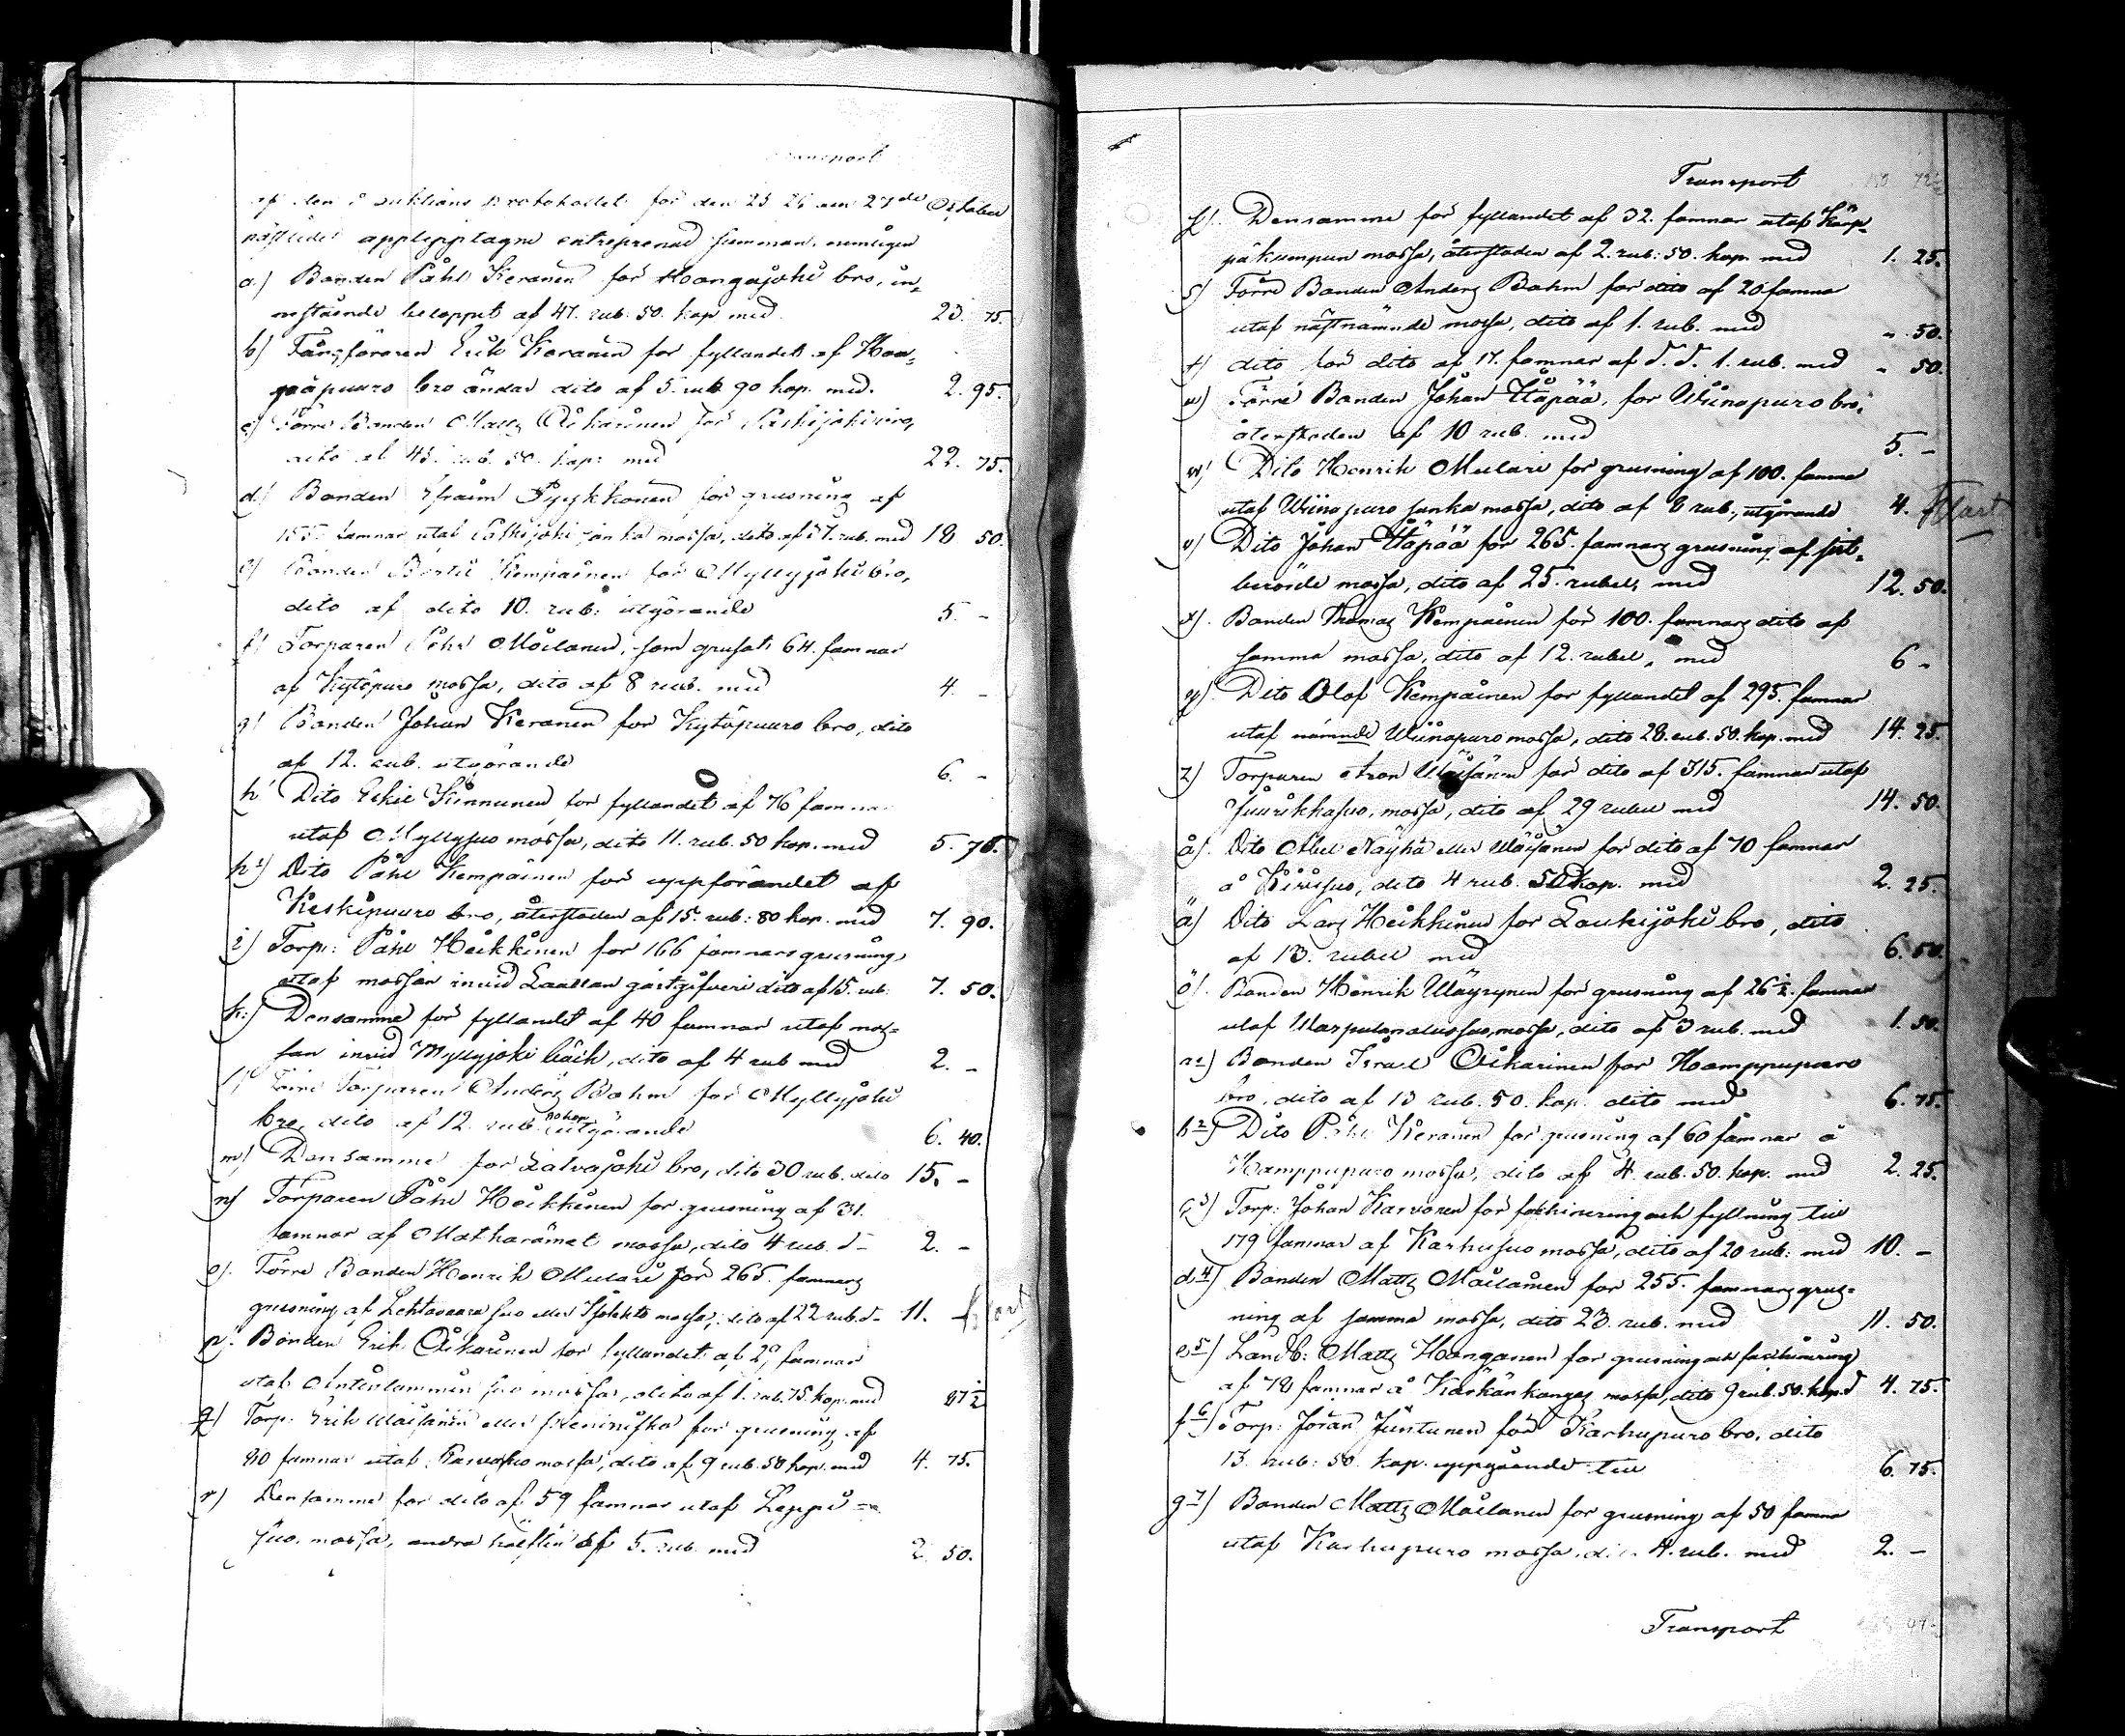 Transport
af den i auktions protokollet för den 25 26 och 27de October
nästledet upplupptagne entreprenad summan, nemligen
a) Bonden Påhl Keranen för Hoangajoki bro, in,
nestående beloppet af 47. rub: 50. kop med 23. 75.
b) Fångföraren Erik Keranen för fyllandet af Hoan,
gaapuuro bro ändar dito af 5. rub 90 kop. med. 2. 95.
c) Förre Bonden Matts Oikarinen för bro,
dito af 45. rub. 50. kop: med 22. 75.
d) Bonden Efraim Pyykkonen för grusning af
155. famnar utaf mossa, dito af 37. rub. med 18 50.
e) Bonden Bertil Kempainen för Myllyjoki bro,
dito af dito 10. rub: utgörande 5. -
f) Torparen Påhl Moilanen, som grusat 64. famnar
af Kytöpuro mossa, dito af 8 rub. med 4. -
g) Bonden Johan Keranen för Kytöpuuro bro, dito
af 12. rub. utgörande 6. -
h) Dito Eskil Kinnunen för fyllandet af 76 famnar
utaf Myllysuo mossa, dito 11. rub. 50 kop. med 5. 75.
h2) Dito Påhl Kempainen för uppförandet aff
Keskipuuro bro, återstoden af 15. rub: 80 kop. med 7. 90.
i) Torp: Påhl Heikkinen för 166 famnars grusning,
utaf mossan invid Laaksan gästgifveri dito af 15. rub: 7. 50.
k:) Densamme för fyllandet af 40 famnar utaf mos=
san invid Myllyjoki bäck, dito af 4 rub med 2. -
l) Förre Torparen Anders Bohm för Myllyjoki
bro, dito af 12. rub. 80 kop utgörande 6. 40.
m) Densamme för Latvajoki bro, dito 30 rub. dito 15. -
n) Torparen Påhl Heikkinen för grusning af 31.
famnar af Matkarämet mossa, dito 4 rub. d- 2. -
o). Förre Bonden Henrik Mulari för 265. famnars
grusning af Lehtovaara suo eller mossa, dito af 22 rub. d- 11. -
p). Bonden Erik Oikarinen för fyllandet af 29 famnar
utaf suo mossa, dito af 1. rub. 75. kop. med 87½
q) Torp: Erik Wäisänen eller för grusning af
80 famnar utaf mossa, dito af 9 rub. 50 kop. med 4. 75.
r) Densamme för dito af 59 famnar utaf Leppi =
suo. mossa, andra hälften af 5. rub. med 2. 50.
Transport
f). Densamme för fyllandet af 32. famnar utaf Körp,
påkumpun mossa, återstoden af 2. rub: 50. kop. med 1. 25.
s) Förre Bonden Anders Bohm för dito af 20 famnar
utaf nästnämnde mossa, dito af 1. rub. med - 50.
t) dito för dito af 17. famnar af d. d. 1. rub. med - 50.
u) Förre Bonden Johan Yläpää, för Wiinapuro bro,
återstoden af 10 rub. med 5. -
w) Dito Henrik Mulari för grusning af 100. famnar
utaf Wiinapuro janka mossa, dito af 8 rub., utgörande 4.
v) Dito Johan Ylöpää för 265. famnars grusning af sist=
berörde mossa, dito af 25. rubel, med 12. 50.
x). Bonden Thomas Kempainen för 100. famnars dito af
samma mossa, dito af 12. rubel, med 6 -
y). Dito Olof Kempainen för fyllandet af 295. famnar
utaf nämnde Wiinapuro mossa, dito 28. rub. 50. kop. med 14. 25.
z) Torparen Aron Wäisänen för dito af 315. famnar utaf
Juurikkasuo, mossa, dito af 29 rubel med 14. 50.
å). Dito Abel Näyhä eller Wäisänen för dito af 70 famnar
å Kirisuo, dito 4 rub. 50 kop. med 2. 25.
ä) Dito Lars Heikkinen för Laukijoki bro, dito
af 13. rubel med 6. 50
ö). Bonden Henrik Wäyrynen för grusning af 26½. famnar
utaf mossa, dito af 3 rub. med 1. 50.
a2) Bonden Israel Oikarinen för Hamppupuro
bro, dito af 13 rub. 50. kop. dito med 6. 75.
b2) Dito Påhl Keranen för grusning af 60 famnar å
Hamppupuro mossa, dito af 4. rub. 50. kop. med 2. 25.
c3) Torp: Johan Karvonen för faskinering och fyllning till
179 famnar af Karhusuo mossa, dito af 20 rub: med 10. -
d4) Bonden Matts Moilanen för 255. famnars grus=
ning af samma mossa, dito 23. rub. med 11. 50.
e5) Landb: Matts Hanganen för grusning och faskinering
af 78 famnar å Karhänkangas mossa, dito 9 rub. 50. kop. d 4. 75.
f6) Torp: Jöran Juntunen för Karhupuro bro, dito
13. rub: 50. kop. uppgående till 6. 75.
g7) Bonden Matts Moilanen för grusning af 50 famnar
utaf Karhupuro mossa, dito 4. rub. med 2. -
Transport